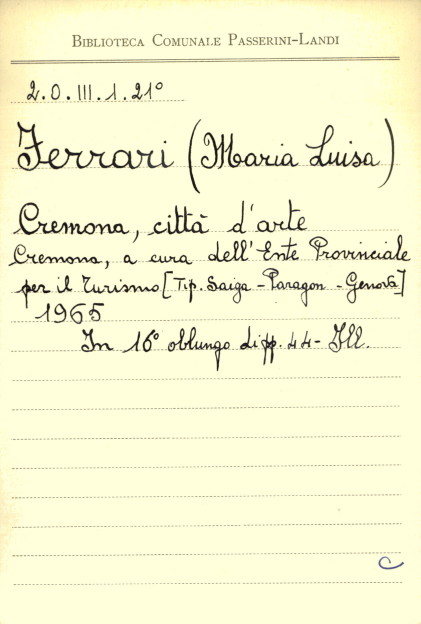 BIBLIOTECA COMUNALE PASSERINI-LANDI
2.O.III.1.21°
Ferrari (Maria Luisa)
Cremona, città d'arte
Cremona, a cura dell'Ente Provinciale
per il Turismo [Tip. Saiga - Paragon - Genova]
1965
In 16° oblungo di pp. 44 - Ill.
C